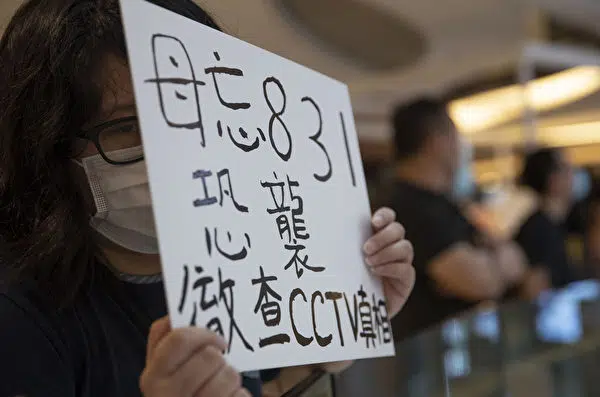 母忘831
恐襲
徹查CCTV真相